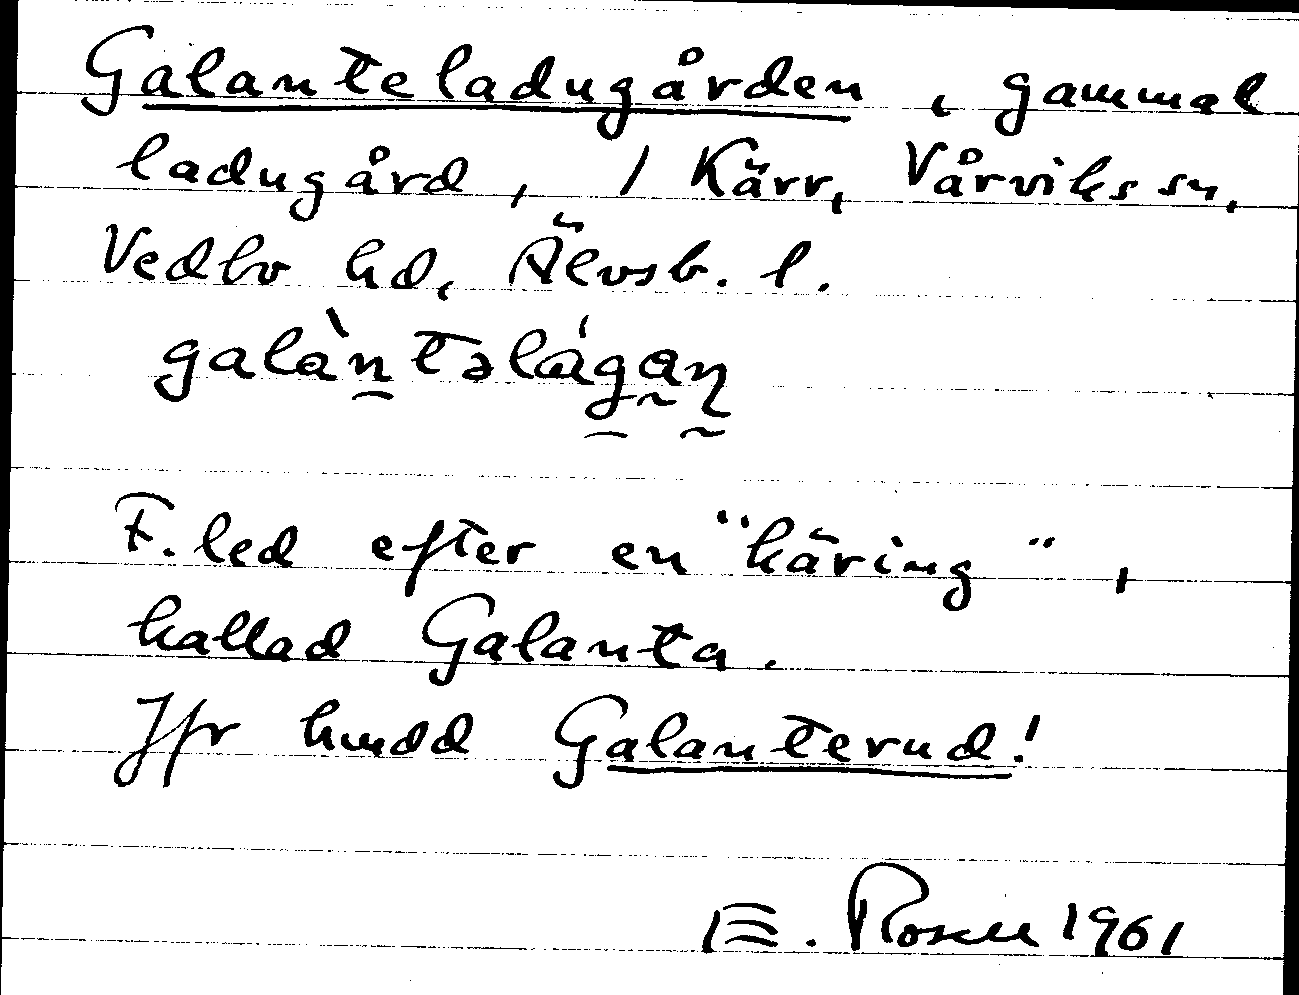 Galanteladugården, gammal
ladugård, 1 Kärr, Vårviks sn,
Vedbo hd, Älvsb. l.
galàntəlágan
F. led efter en "käring",
kallad Galanta.
Jfr hmdd Galanterud!
E. Rosell 1961